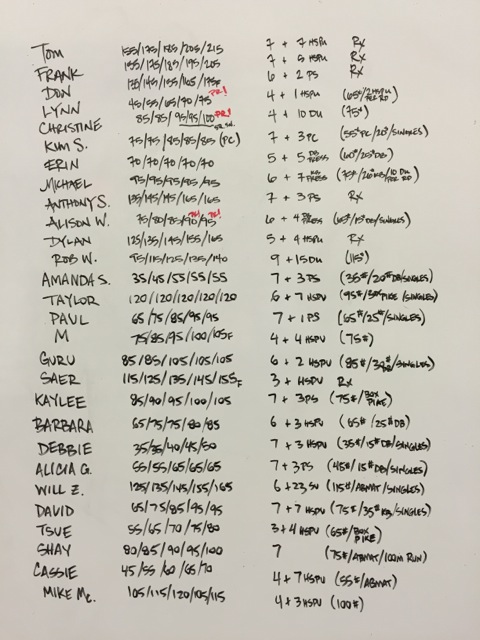 TOM 155/175/185/205/215 7 + 7 HSPU Rx
FRANK 155/175/185/195/205 7 + 5 HSPU Rx
DON 135/145/155/165/175F 6 + 2 PS Rx
LYNN 45/55/65/70/75 PR! 4 + 1 HSPU (65#/2 HSPU PER RD)
CHRISTINE 85/85/95/95/100 PR! 4 + 10 DU (75#)
KIM S. 75/75/85/85/85 (PC) 7 + 3 PC (55# PC/20#/SINGLES)
ERIN 70/70/70/70/70 5 + 5 DB PRESS (60#/25#DB)
MICHAEL 95/95/95/95/95 6 + 7 KB PRESS (75#/26#KB/10 DU PER RD)
ANTHONY S. 135/145/145/165/165 7 + 3 PS Rx
ALISON W. 75/80/85/90/95 PR! PR! 6 + 4 DB PRESS (65#/15#DB/SINGLES)
DYLAN 125/135/145/155/165 5 + 4 HSPU Rx
ROB W. 95/115/125/135/140 9 + 15 DU (115#)
AMANDA S. 35/45/55/55/55 7 + 3 PS (35#/20#DB/SINGLES)
TAYLOR 120/120/120/120/120 6 + 7 HSPU (95#/BOX PIKE/SINGLES)
PAUL 65/75/85/95/95 7 + 1 PS (65#/25#/SINGLES)
M 75/85/95/100/105F 4 + 4 HSPU (75#)
GURU 85/85/105/105/105 6 + 2 HSPU (85#/SINGLES)
SAER 115/125/135/145/155F 3 + HSPU Rx
KAYLEE 85/90/95/100/105 7 + 3PS (75#/BOX PIKE)
BARBARA 65/75/75/80/85 6 + 3 HSPU (65#/25#DB)
DEBBIE 35/35/40/45/50 7 + 3 HSPU (35#/15#DB/SINGLES)
ALICIA G. 55/55/65/65/65 7 + 3 PS (45#/15#DB/SINGLES)
WILL Z. 125/135/145/155/165 6 + 23 SU (115#/ABMAT/SINGLES)
DAVID 65/75/85/95/95 7 + 7 HSPU (75#/35#KB/SINGLES)
TSUE 55/65/70/75/80 3 + 4 HSPU (65#/BOX PIKE)
SHAY 80/85/90/95/100 7 (75#/ABMAT/100M RUN)
CASSIE 45/55/60/65/70 4 + 7 HSPU (55#/ABMAT)
MIKE Mc. 105/115/120/105/115 4 + 3 HSPU (100#)